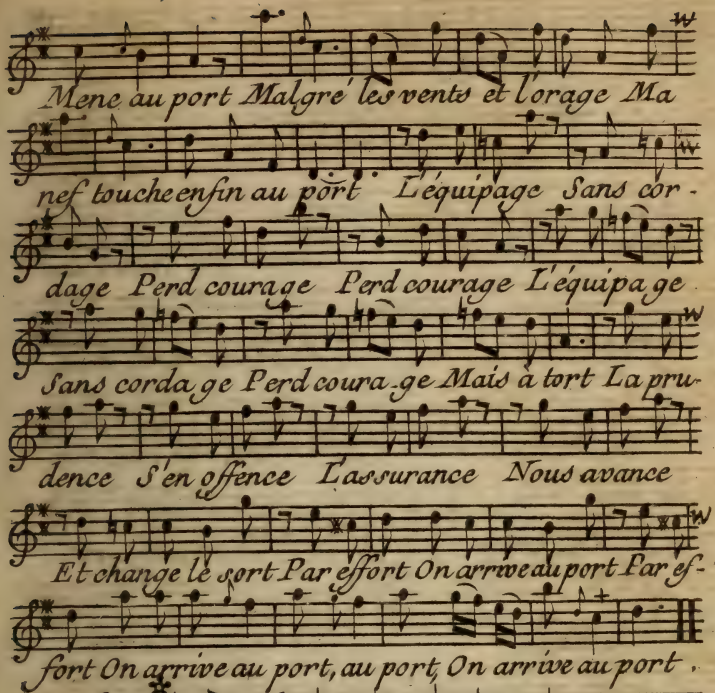 Mene au port Malgré les vents et l'orage Ma
nef touche enfin au port L'équipage Sans cor-
dage Perd courage Perd courage L'équipa ge
Sans corda ge Perd coura-ge Mais à tort La pru-
dence S'en offence L'assurance Nous avance
Et change le sort Par effort On arrive au port Par ef-
fort On arrive au port, au port, On arrive au port.